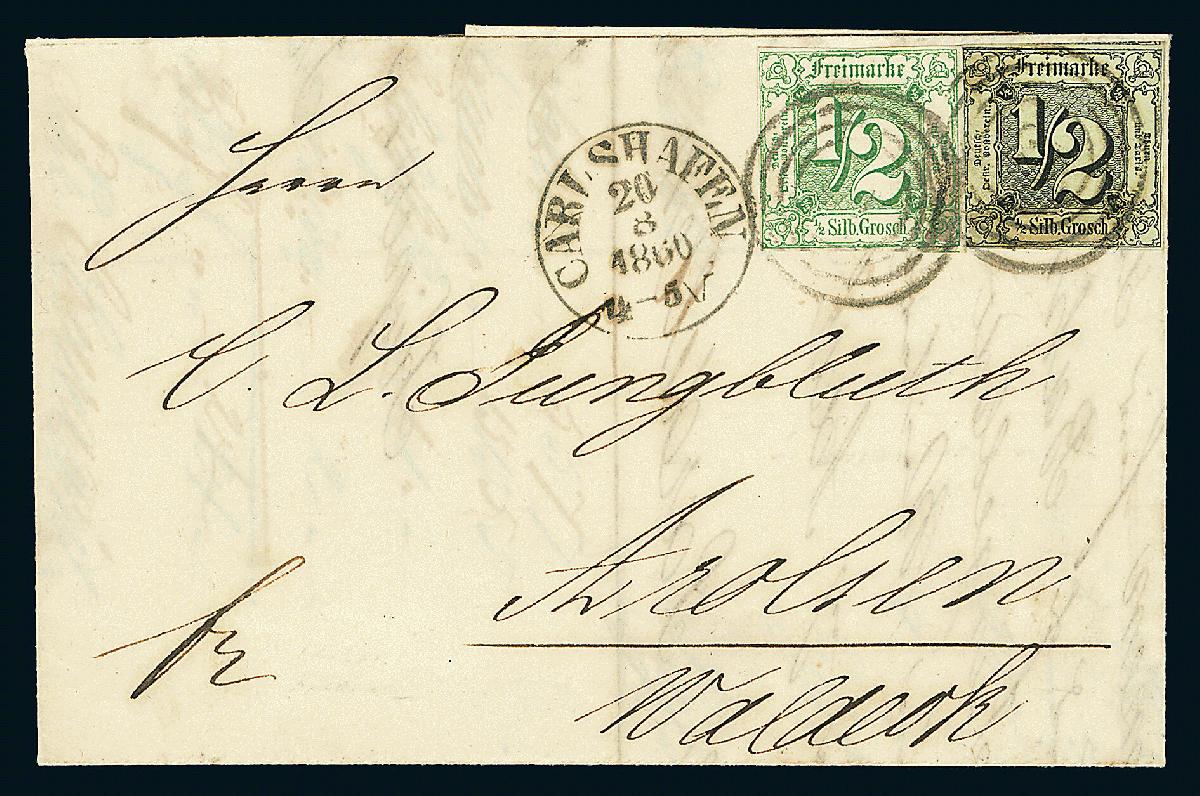 Freimarke
1/2
1/2 Silb. Grosch.
Freimarke
1/2
1/2 Silb. Grosch.
CARLSHAFEN
20
8
1860
4-5 V
Herrn
C. L. Jungbluth
Arolsen
fr
Waldeck